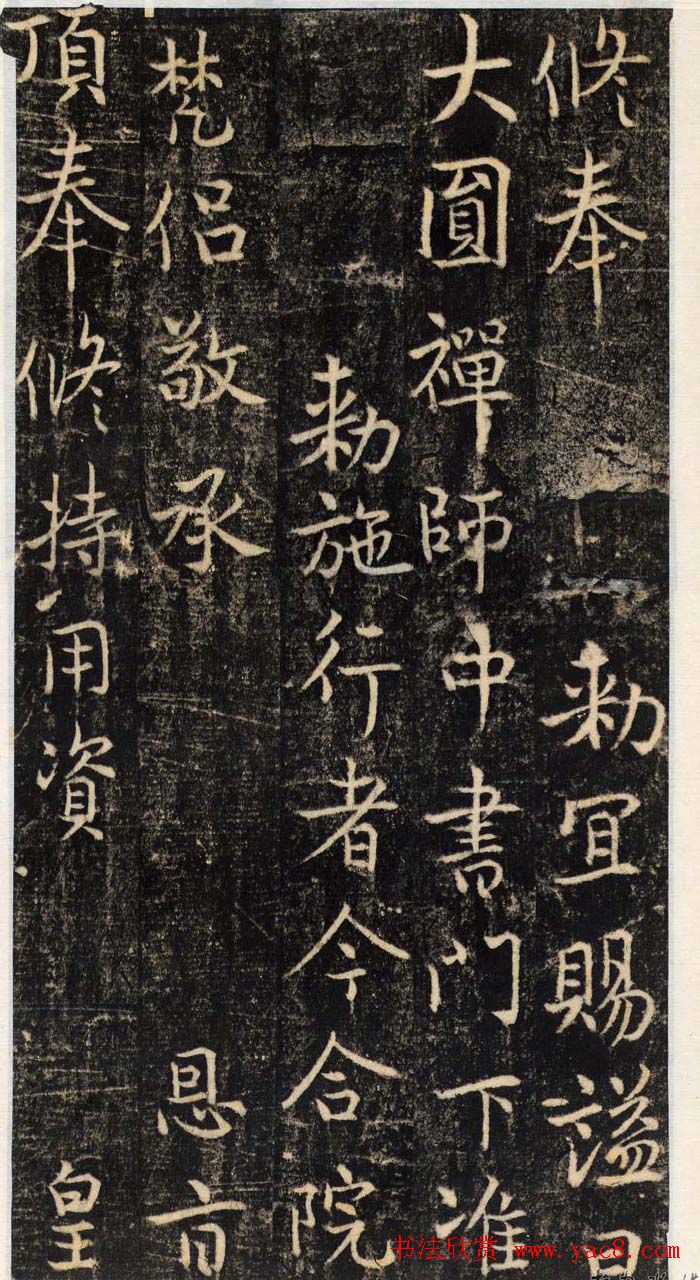 修奉 勅宜賜謚曰
大圓禪師中書門下准
勅施行者今合院
梵侣敬承 恩旨
頂奉修持用資 皇
书法欣赏 www.yac8.com